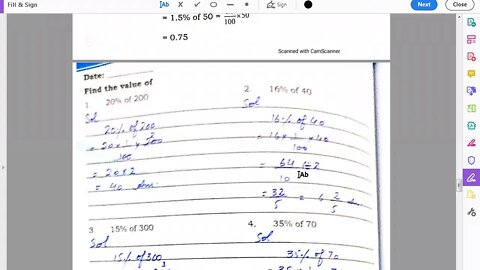 Fill & Sign
Ab
Sign
Next
Close
= 1.5% of 50 = ×50
100
= 0.75
Scanned with CamScanner
Date:
Find the value of
1. 20% of 200
Sol
20% of 200
= 20 × 1 × 200
100
= 20 × 2
= 40 Ans.
2. 16% of 40
Sol
16% of 40
= 16 × 1 × 40
100
= 64 ÷ 2
10
Ab
= 32 = 6 2
5 5
3. 15% of 300
Sol
15% of 300
4. 35% of 70
Sol
35% of 70